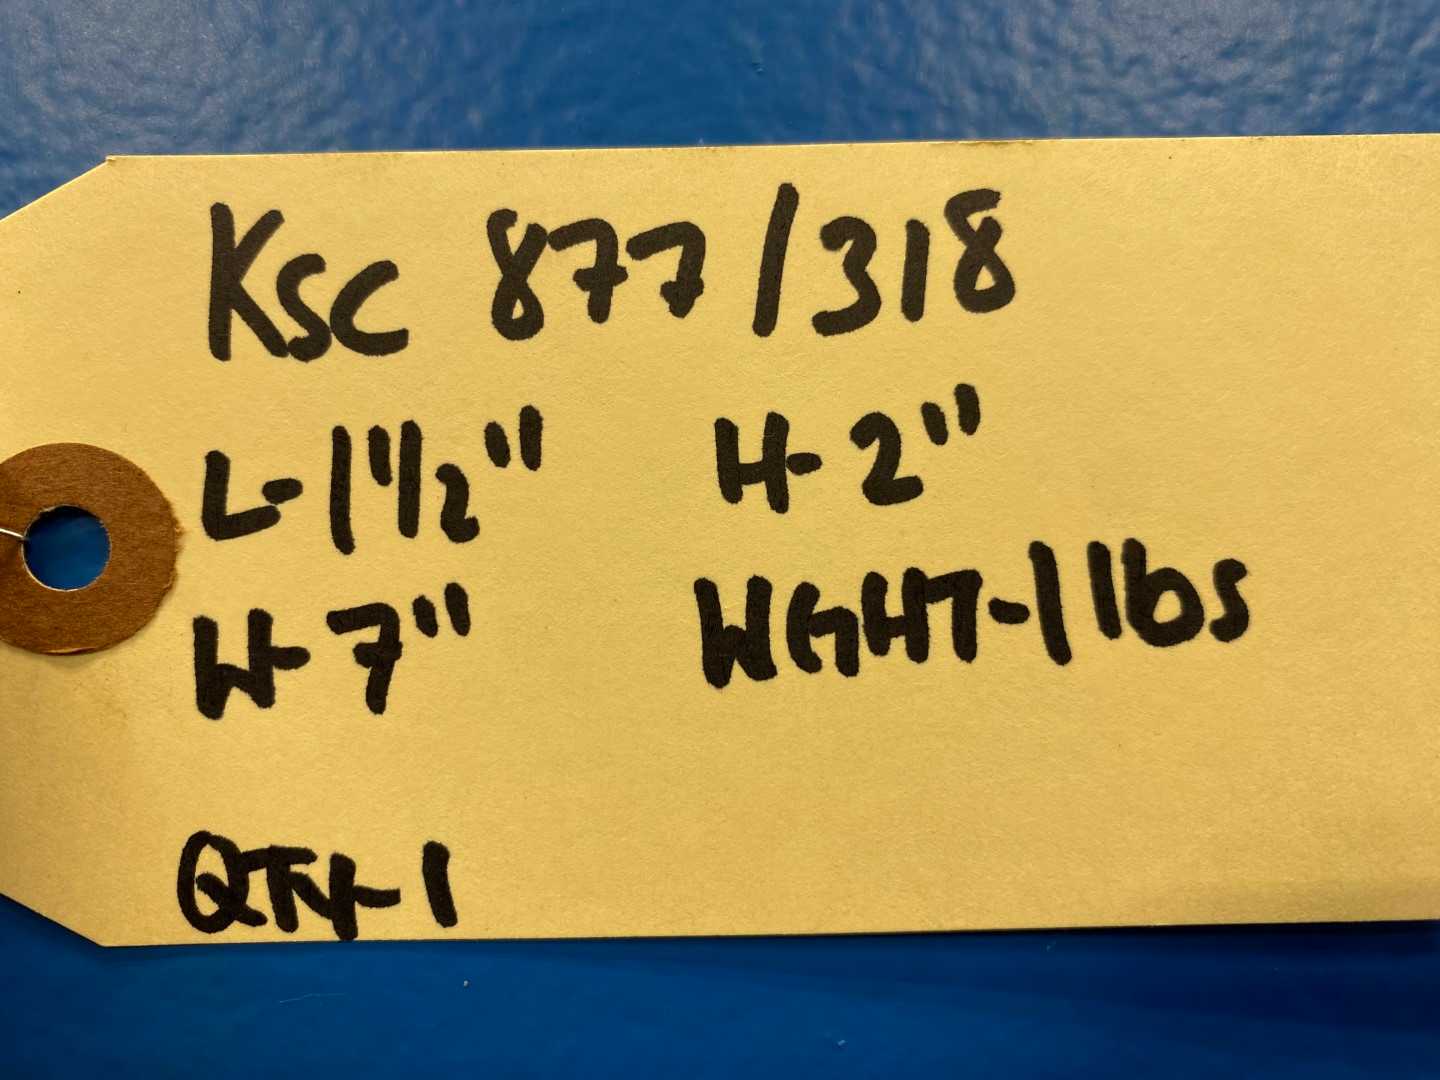 KSC 877/318
L-1 1/2" H-2"
W-7" WGHT-1 lbs
QTY-1